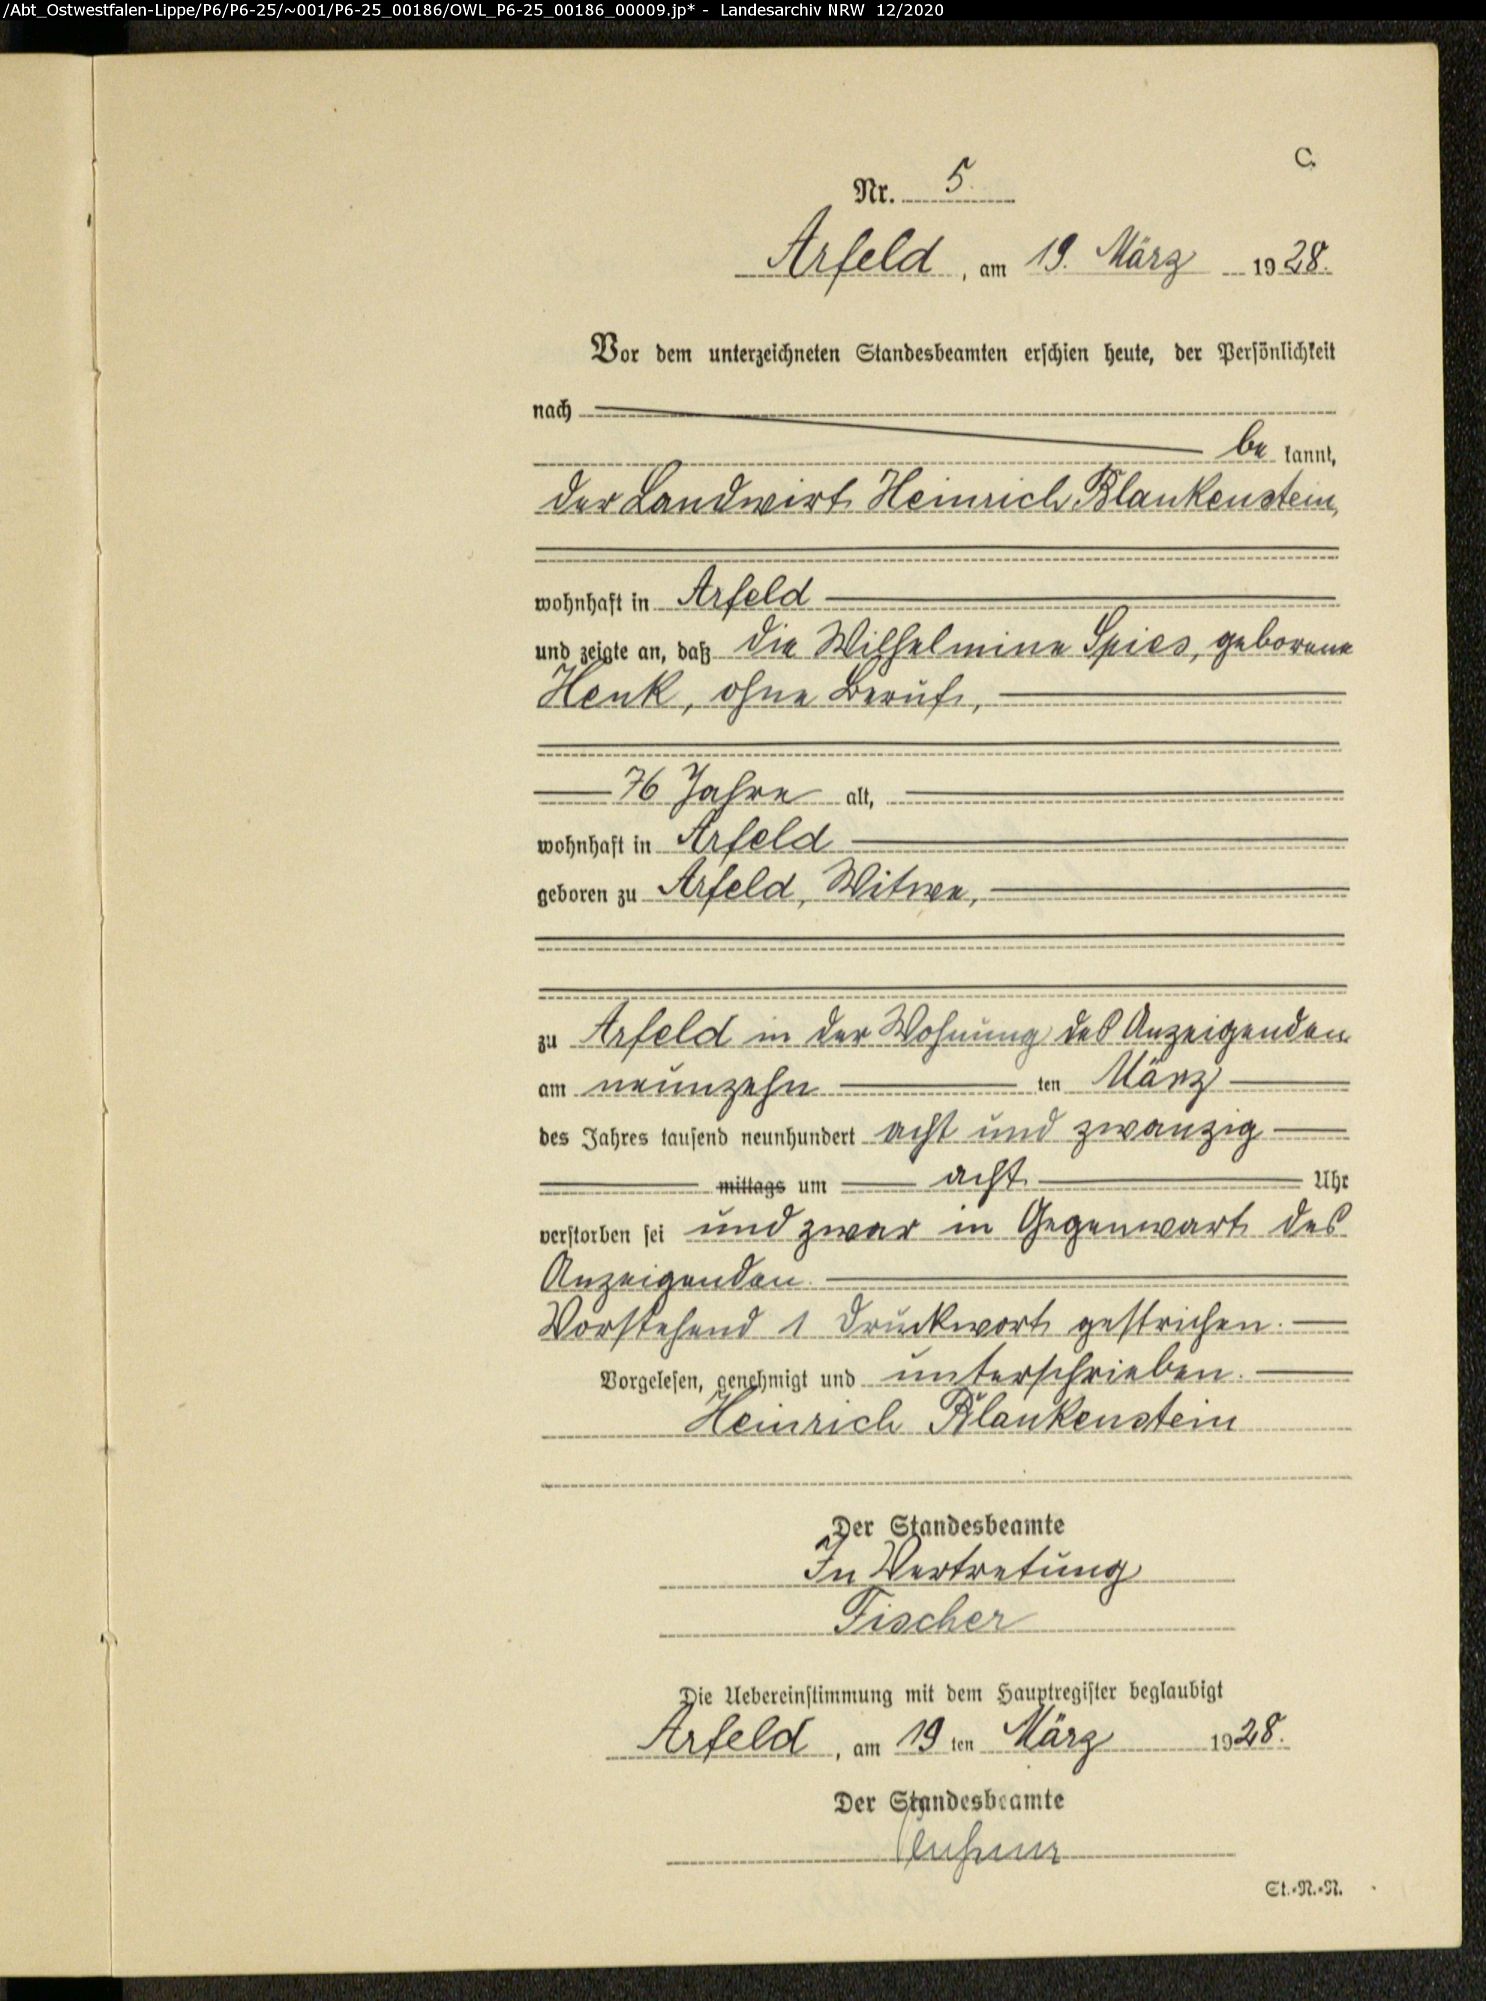 /Abt_Ostwestfalen-Lippe/P6/P6-25/~001/P6-25_00186/OWL_P6-25_00186_00009.jp* - Landesarchiv NRW 12/2020
C.
Nr. 5.
Arfeld, am 19. März 1928.
Vor dem unterzeichneten Standesbeamten erschien heute, der Persönlichkeit
nach
be kannt,
der Landwirt Heinrich Blankenstein,
wohnhaft in Arfeld
und zeigte an, daß die Wilhelmine Spies, geborene
Henk, ohne Beruf,
76 Jahre alt,
wohnhaft in Arfeld
geboren zu Arfeld, Witwe,
zu Arfeld in der Wohnung des Anzeigenden
am neunzehn ten März
des Jahres tausend neunhundert acht und zwanzig
mittags um acht Uhr
verstorben sei und zwar in Gegenwart des
Anzeigenden.
Vorstehend 1 Druckwort gestrichen.
Vorgelesen, genehmigt und unterschrieben.
Heinrich Blankenstein
Der Standesbeamte
In Vertretung
Fischer
Die Uebereinstimmung mit dem Hauptregister beglaubigt
Arfeld, am 19 ten März 1928.
Der Standesbeamte
St.-N.-N.